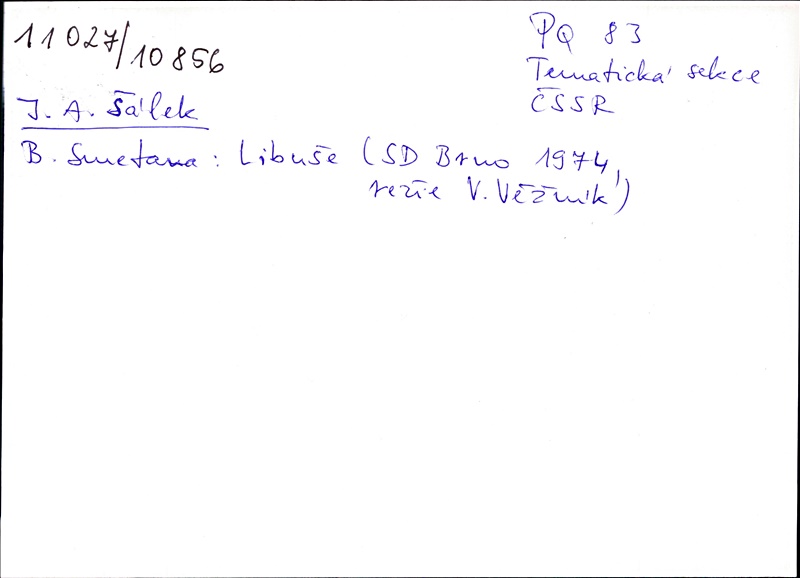 11027/10856
PQ 83
Tematická sekce
ČSSR
J. A. Šálek
B. Smetana: Libuše (SD Brno 1974,
režie V. Věžník)